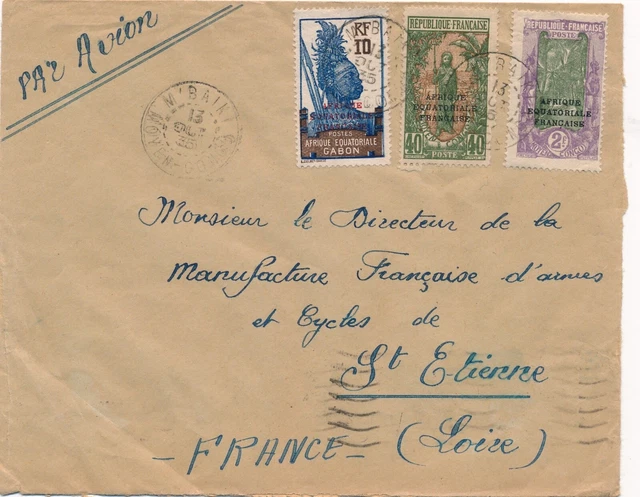 PAR Avion
M'BAIKI
13
OCT
35
RF
10
AFRIQUE
EQUATORIALE
FRANÇAISE
POSTES
AFRIQUE EQUATORIALE
GABON
REPUBLIQUE FRANÇAISE
AFRIQUE
EQUATORIALE
FRANÇAISE
40 POSTE 40
REPUBLIQUE-FRANÇAISE
POSTE
AFRIQUE
EQUATORIALE
FRANÇAISE
2F
Monsieur le Directeur de la
Manufacture Française d'armes
et Cycles de
St Etienne
- FRANCE - (Loire)